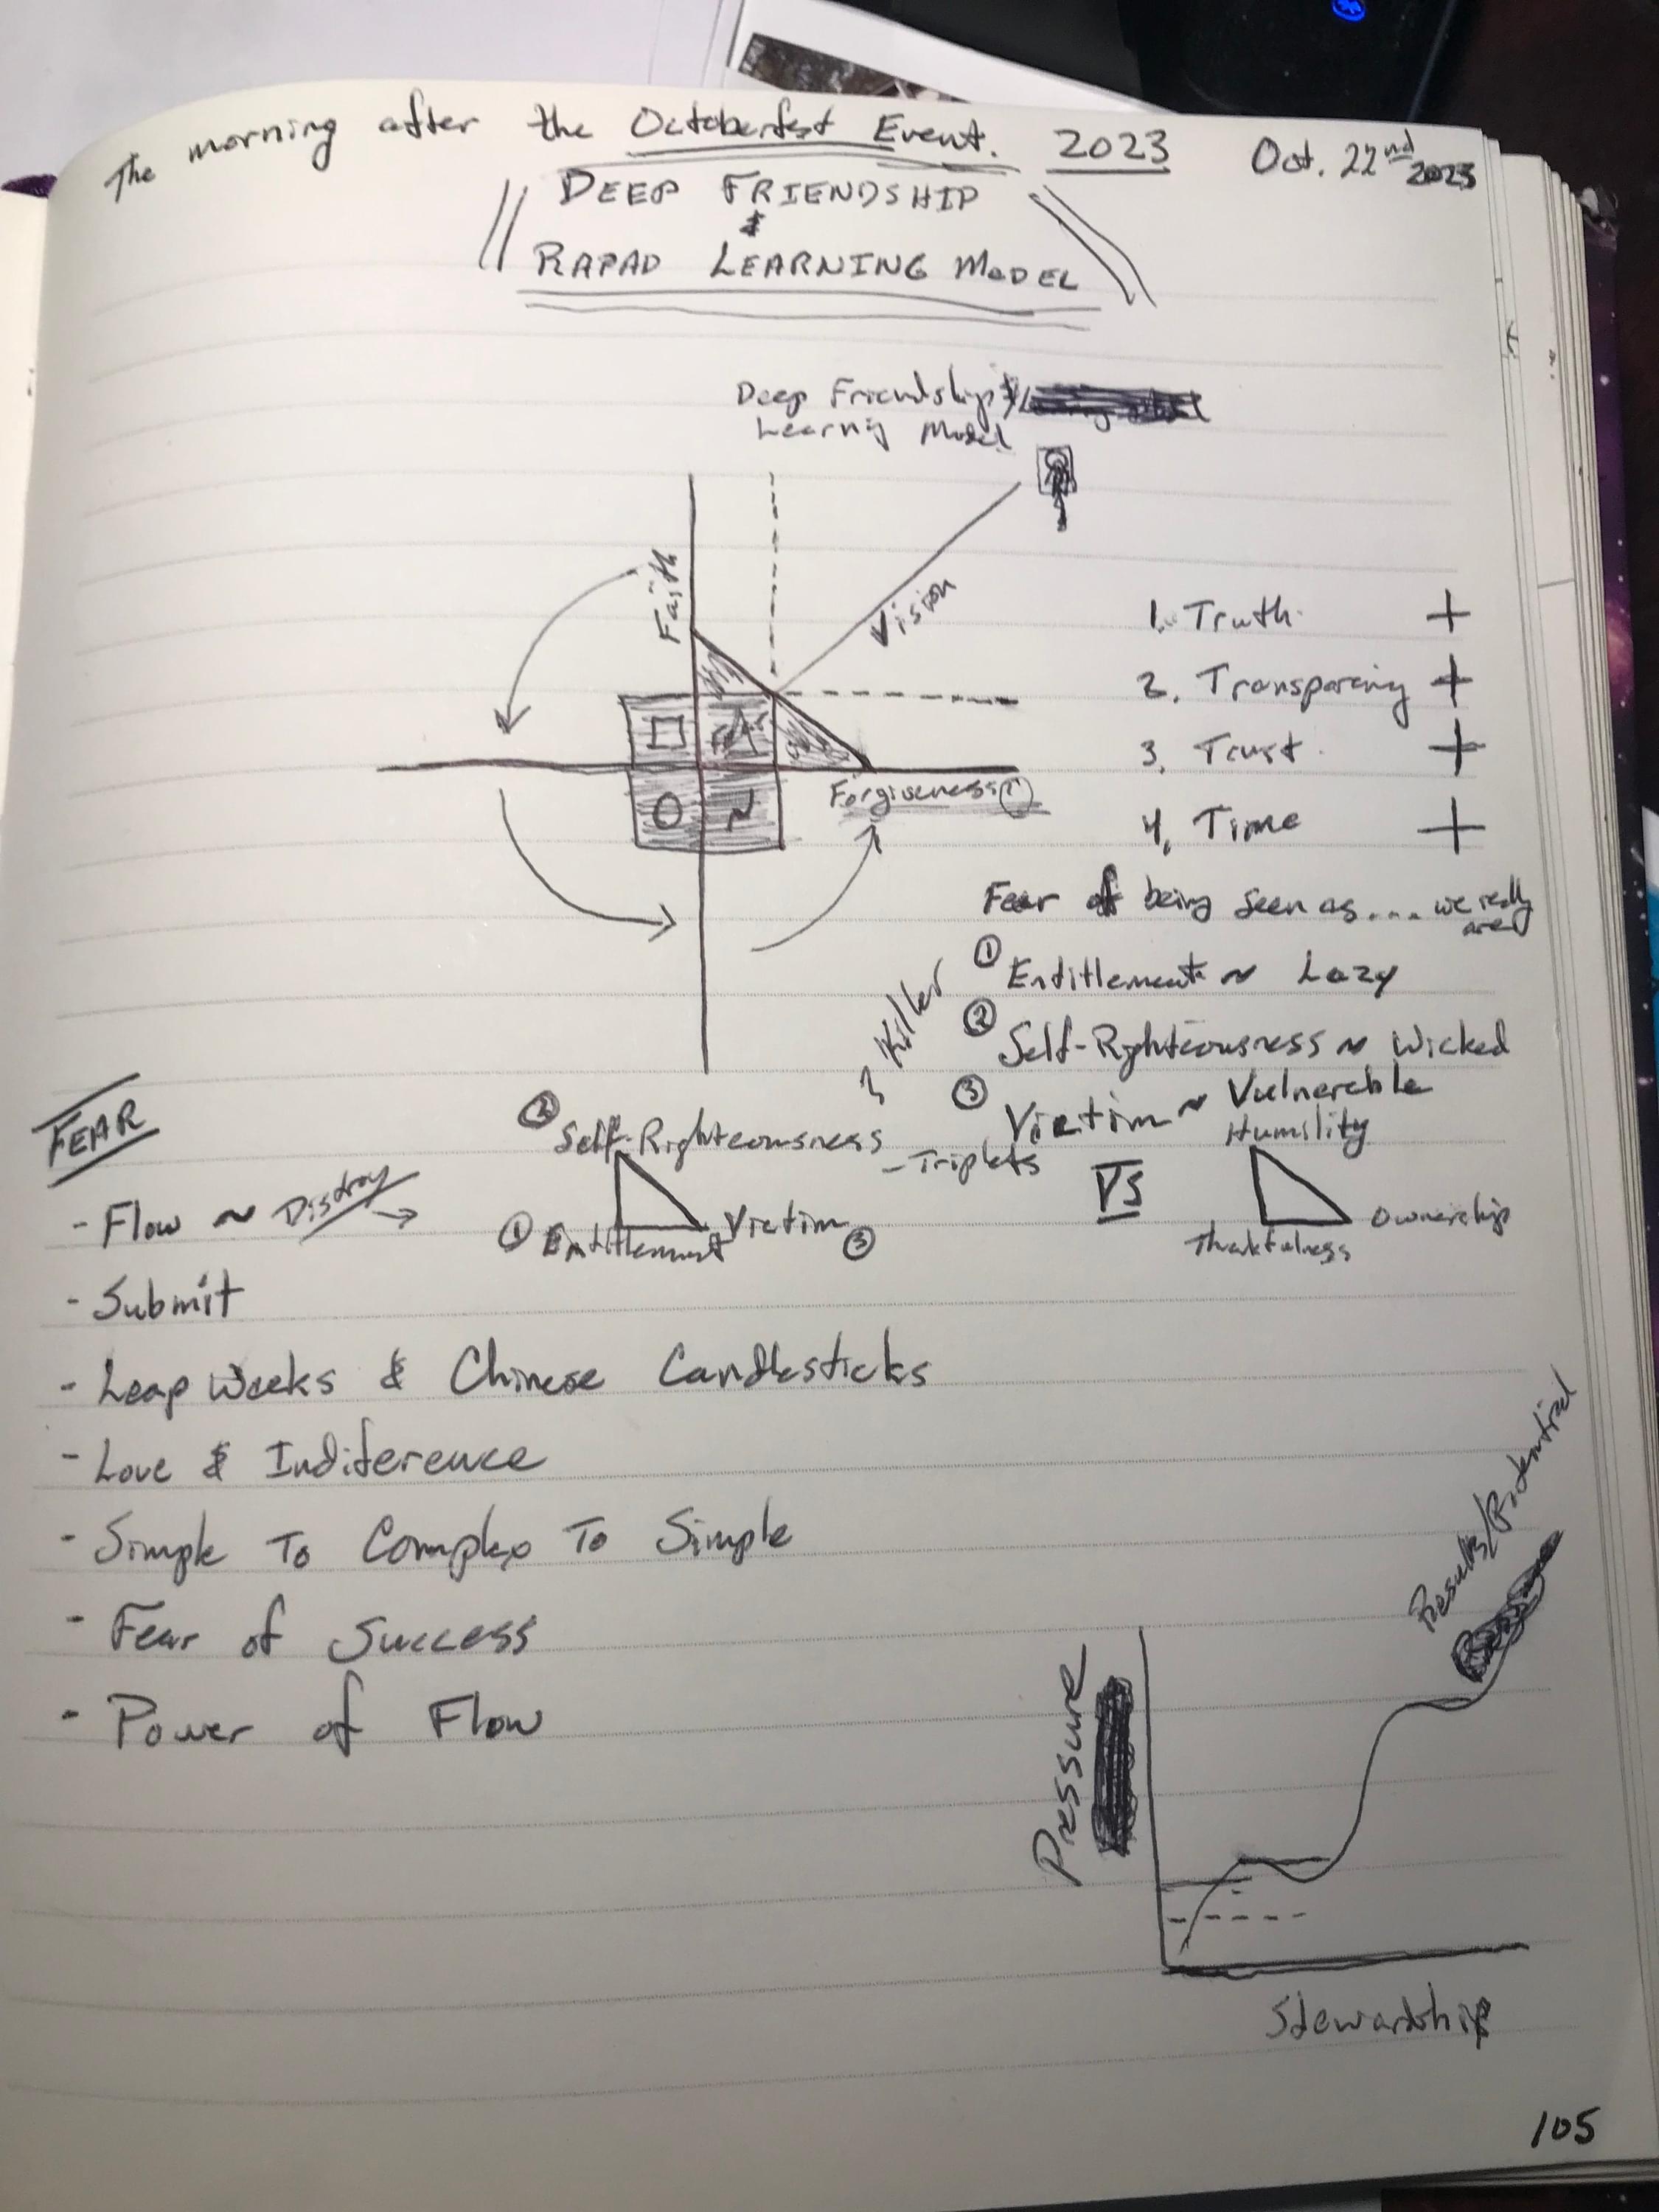 The morning after the Octoberfest Event. 2023 Oct. 22nd 2023
DEEP FRIENDSHIP
&
RAPAD LEARNING MODEL
Deep Friendship &
Learnig Model
Faith
Vision
Forgiveness
1. Truth. +
2. Transparincy +
3. Trust. +
4. Time +
Fear of being seen as.... we really
are
① Entitlement ~ Lazy
② Self-Righteousness ~ Wicked
③ Victim ~ Vulnerable
Humility
3 Killer
- Triplets
VS
Thankfulness
Ownership
② Self-Righteousness
① Entitlement
Victim ③
FEAR
- Flow ~ Distroy →
- Submit
- Leap Weeks & Chinese Candlesticks
- Love & Indiference
- Simple To Complex To Simple
- Fear of Success
- Power of Flow
Results/Potential
Pressure
Stewardship
105